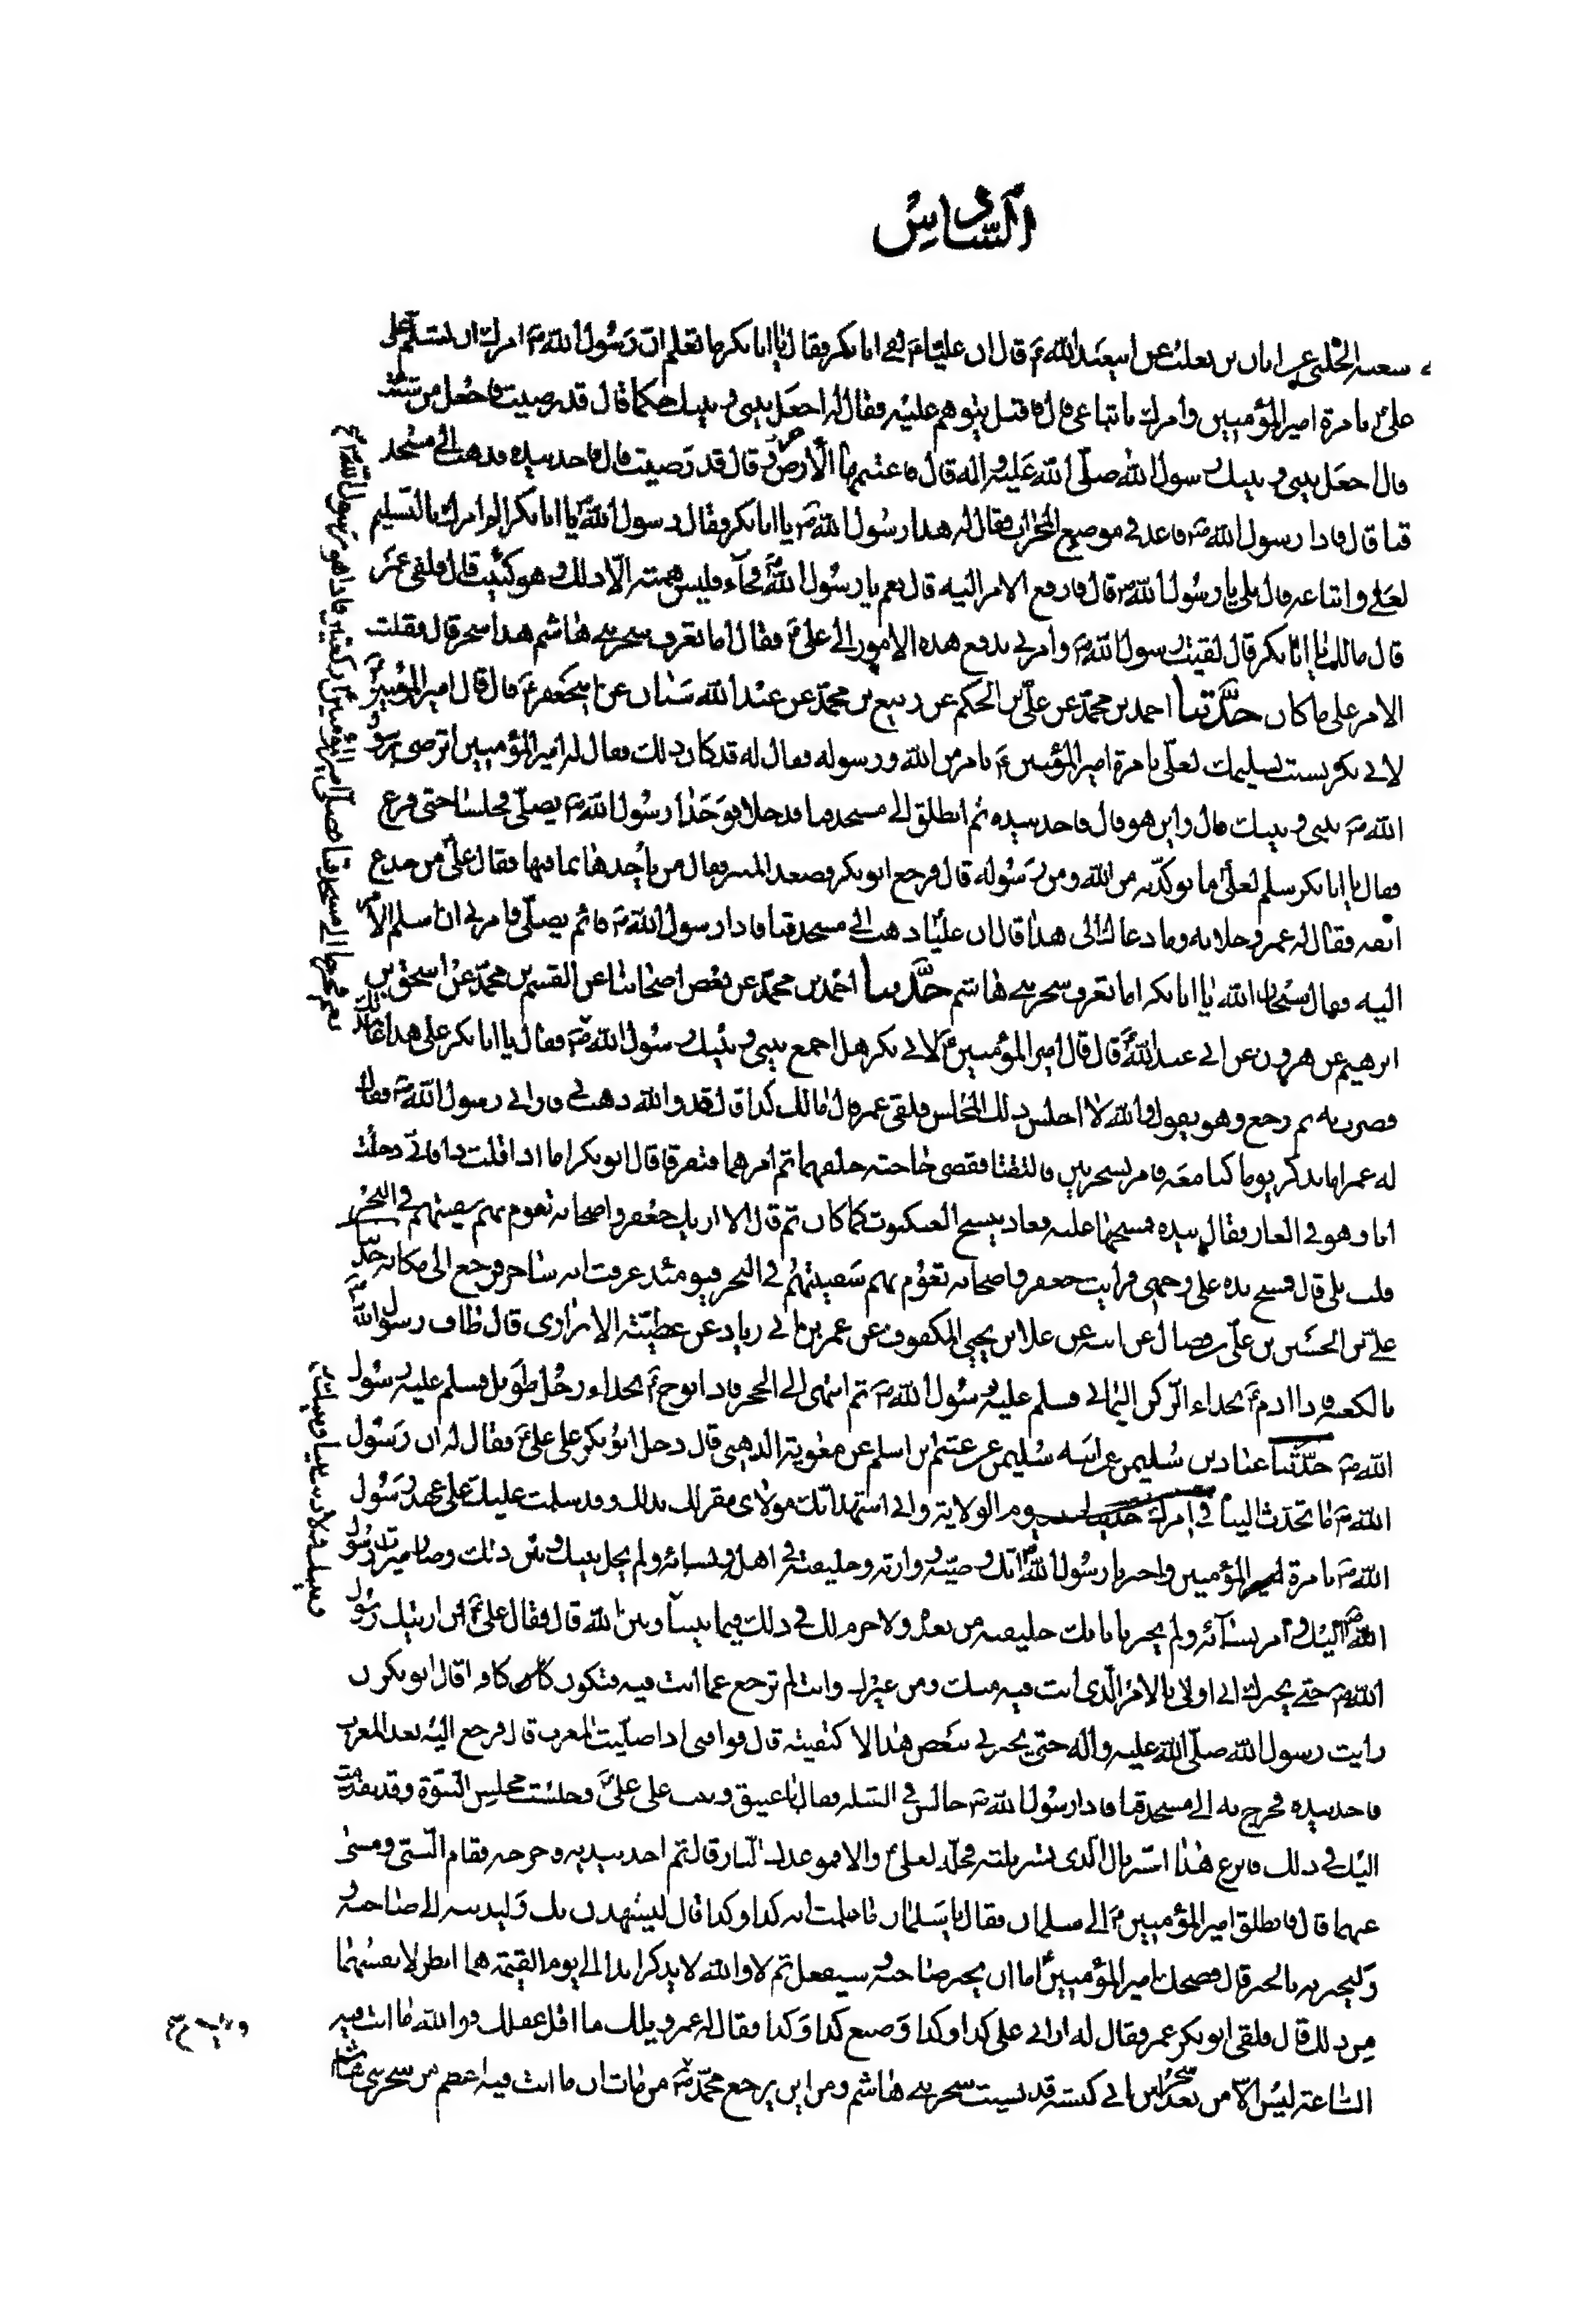 السادس
سعيد الخثعمي عن ابان بن تغلب عن ابيعبد الله ع قال ان عليا ع لقى ابا بكر فقال يا ابا بكر ما تعلم ان رسول الله ص امرك ان تسلم على
علي بامرة امير المؤمنين وامرك باتباعي قال فاقبل يتوهم عليه فقال له اجعل بيني وبينك حكما قال قد رضيت فاجعل من شئت
قال اجعل بيني وبينك رسول الله صلى الله عليه واله قال فاغتنمها الاخر وقال قد رضيت قال فاخذ بيده فذهب الى مسجد
قبا قال فاذا رسول الله ص قاعد في موضع المحراب فقال له هذا رسول الله ص يا ابا بكر فقال رسول الله ص يا ابا بكر الم امرك بالتسليم
لعلي واتباعه قال بلى يا رسول الله ص قال فادفع الامر اليه قال نعم يا رسول الله ص فجاء وليس همته الا ذلك وهو كئيب قال فلقى عمر
قال مالك يا ابا بكر قال لقيت رسول الله ص وامرني بدفع هذه الامور الى علي ع فقال اما تعرف سحر بني هاشم هذا سحر قال فقلت
الامر على ما كان حدثنا احمد بن محمد عن علي بن الحكم عن ربيع بن محمد عن عبد الله سنان عن ابيجعفر ع قال قال امير المؤمنين
لابي بكر نسيت تسليمك لعلي بامرة امير المؤمنين ع بامر من الله ورسوله فقال له قد كان ذلك فقال له امير المؤمنين اترضى برسول
الله ص بيني وبينك قال واين هو قال فاخذ بيده ثم انطلق الى مسجد قبا فدخلا فوجدا رسول الله ص يصلي فجلسا حتى فرغ
فقال يا ابا بكر سلم لعلي ما توكدته من الله ومن رسوله قال فرجع ابو بكر فصعد المنبر فقال من ياخذها بما فيها فقال علي من جدع
انفه فقال له عمر وخلا به وما دعاك الى هذا قال ان عليا ذهب الى مسجد قبا فاذا رسول الله ص قائم يصلي فامرني ان اسلم الامر
اليه فقال سبحان الله يا ابا بكر اما تعرف سحر بني هاشم حدثنا احمد بن محمد عن بعض اصحابنا عن القسم بن محمد عن اسحق بن
ابرهيم عن هرون عن ابي عبد الله ع قال قال امير المؤمنين ع لابي بكر هل اجمع بيني وبينك رسول الله ص فقال يا ابا بكر على هذا عاهدتك
فصر به ثم رجع وهو يقول والله لا اجلس ذلك المجلس فلقى عمر قال مالك كذا قال قد والله ذهب بي فاراني رسول الله ص فقال
له عمر اما تذكر يوما كنا معه فامر بشجرتين فالتقتا فقضى حاجته خلفهما ثم امرهما فتفرقا قال ابو بكر اما اذا قلت ذا فاني دخلت
انا وهو في الغار فقال بيده فمسحها عليه فعاد ينسج العنكبوت كما كان ثم قال الا اريك جعفر واصحابه تعوم بهم سفينتهم في البحر
قلت بلى قال فمسح يده على وجهي فرايت جعفر واصحابه تعوم بهم سفينتهم في البحر فيومئذ عرفت انه ساحر فرجع الى مكانه حدثنا
علي بن الحسن بن علي بن فضال عن ابيه عن علا بن يحيى المكفوف عن عمر بن ابي زياد عن عطية الابزاري قال طاف رسول الله
بالكعبة فاذا ادم ع بحذاء الركن اليماني فسلم عليه رسول الله ص ثم انتهى الى الحجر فاذا نوح ع بحذاء رجل طويل فسلم عليه رسول
الله ص حدثنا عباد بن سليمن عن ابيه سليمن عن عيثم بن اسلم عن معوية الدهني قال دخل ابو بكر على علي ع فقال له ان رسول
الله ص ما تحدث الينا في امرك يوم الولاية واني اشهد انك مولاي مقر لك بذلك وقد سلمت عليك على عهد رسول
الله ص بامرة امير المؤمنين واخبرنا رسول الله ص انك وصيه ووارثه وخليفته في اهله ونسائه ولم يحل بينك وبين ذلك وصار ميراث رسول
الله ص اليك وامر نسائه ولم يخبرنا بانك خليفته من بعده ولا جرم لك في ذلك فيما بيننا وبين الله قال فقال علي ع ان اريتك رسول
الله ص حتى يخبرك اني اولى بالامر الذي انت فيه منك ومن غيرك وانت لم ترجع عما انت فيه فتكون كافرا قال ابو بكر ان
رايت رسول الله صلى الله عليه واله حتى يخبرني ببعض هذا لاكتفيته قال فوافني اذا صليت المغرب قال فرجع اليه بعد المغرب
فاخذ بيده فخرج به الى مسجد قبا فاذا رسول الله ص جالس في القبلة فقال يا عتيق وثبت على علي ع وجلست مجلس النبوة وقد تقدمت
اليك في ذلك فانزع هذا السربال الذي تسربلته فخله لعلي ع والا فموعدك النار قال ثم اخذ بيديه فاخرجه فقام النبي ومشى
عنهما قال فانطلق امير المؤمنين ع الى سلمان فقال يا سلمان ما علمت انه كذا وكذا قال ليشهدن بك وليدينه الى صاحبه
وليخبرنه بالخبر قال فضحك امير المؤمنين ع اما ان يخبر صاحبه فسيفعل ثم لا والله لا يذكر ابدا الى يوم القيمة هما انظر لانفسهما
من ذلك قال فلقى ابو بكر عمر فقال له اراني علي كذا وكذا وصنع كذا وكذا فقال له عمر ويلك ما اقل عقلك فوالله ما انت فيه
الساعة ليس الا من بعد سحر ابن ابي كبشة قد نسيت سحر بني هاشم ومن اين يرجع محمد ص من مات ان ما انت فيه اعظم من سحر بني هاشم